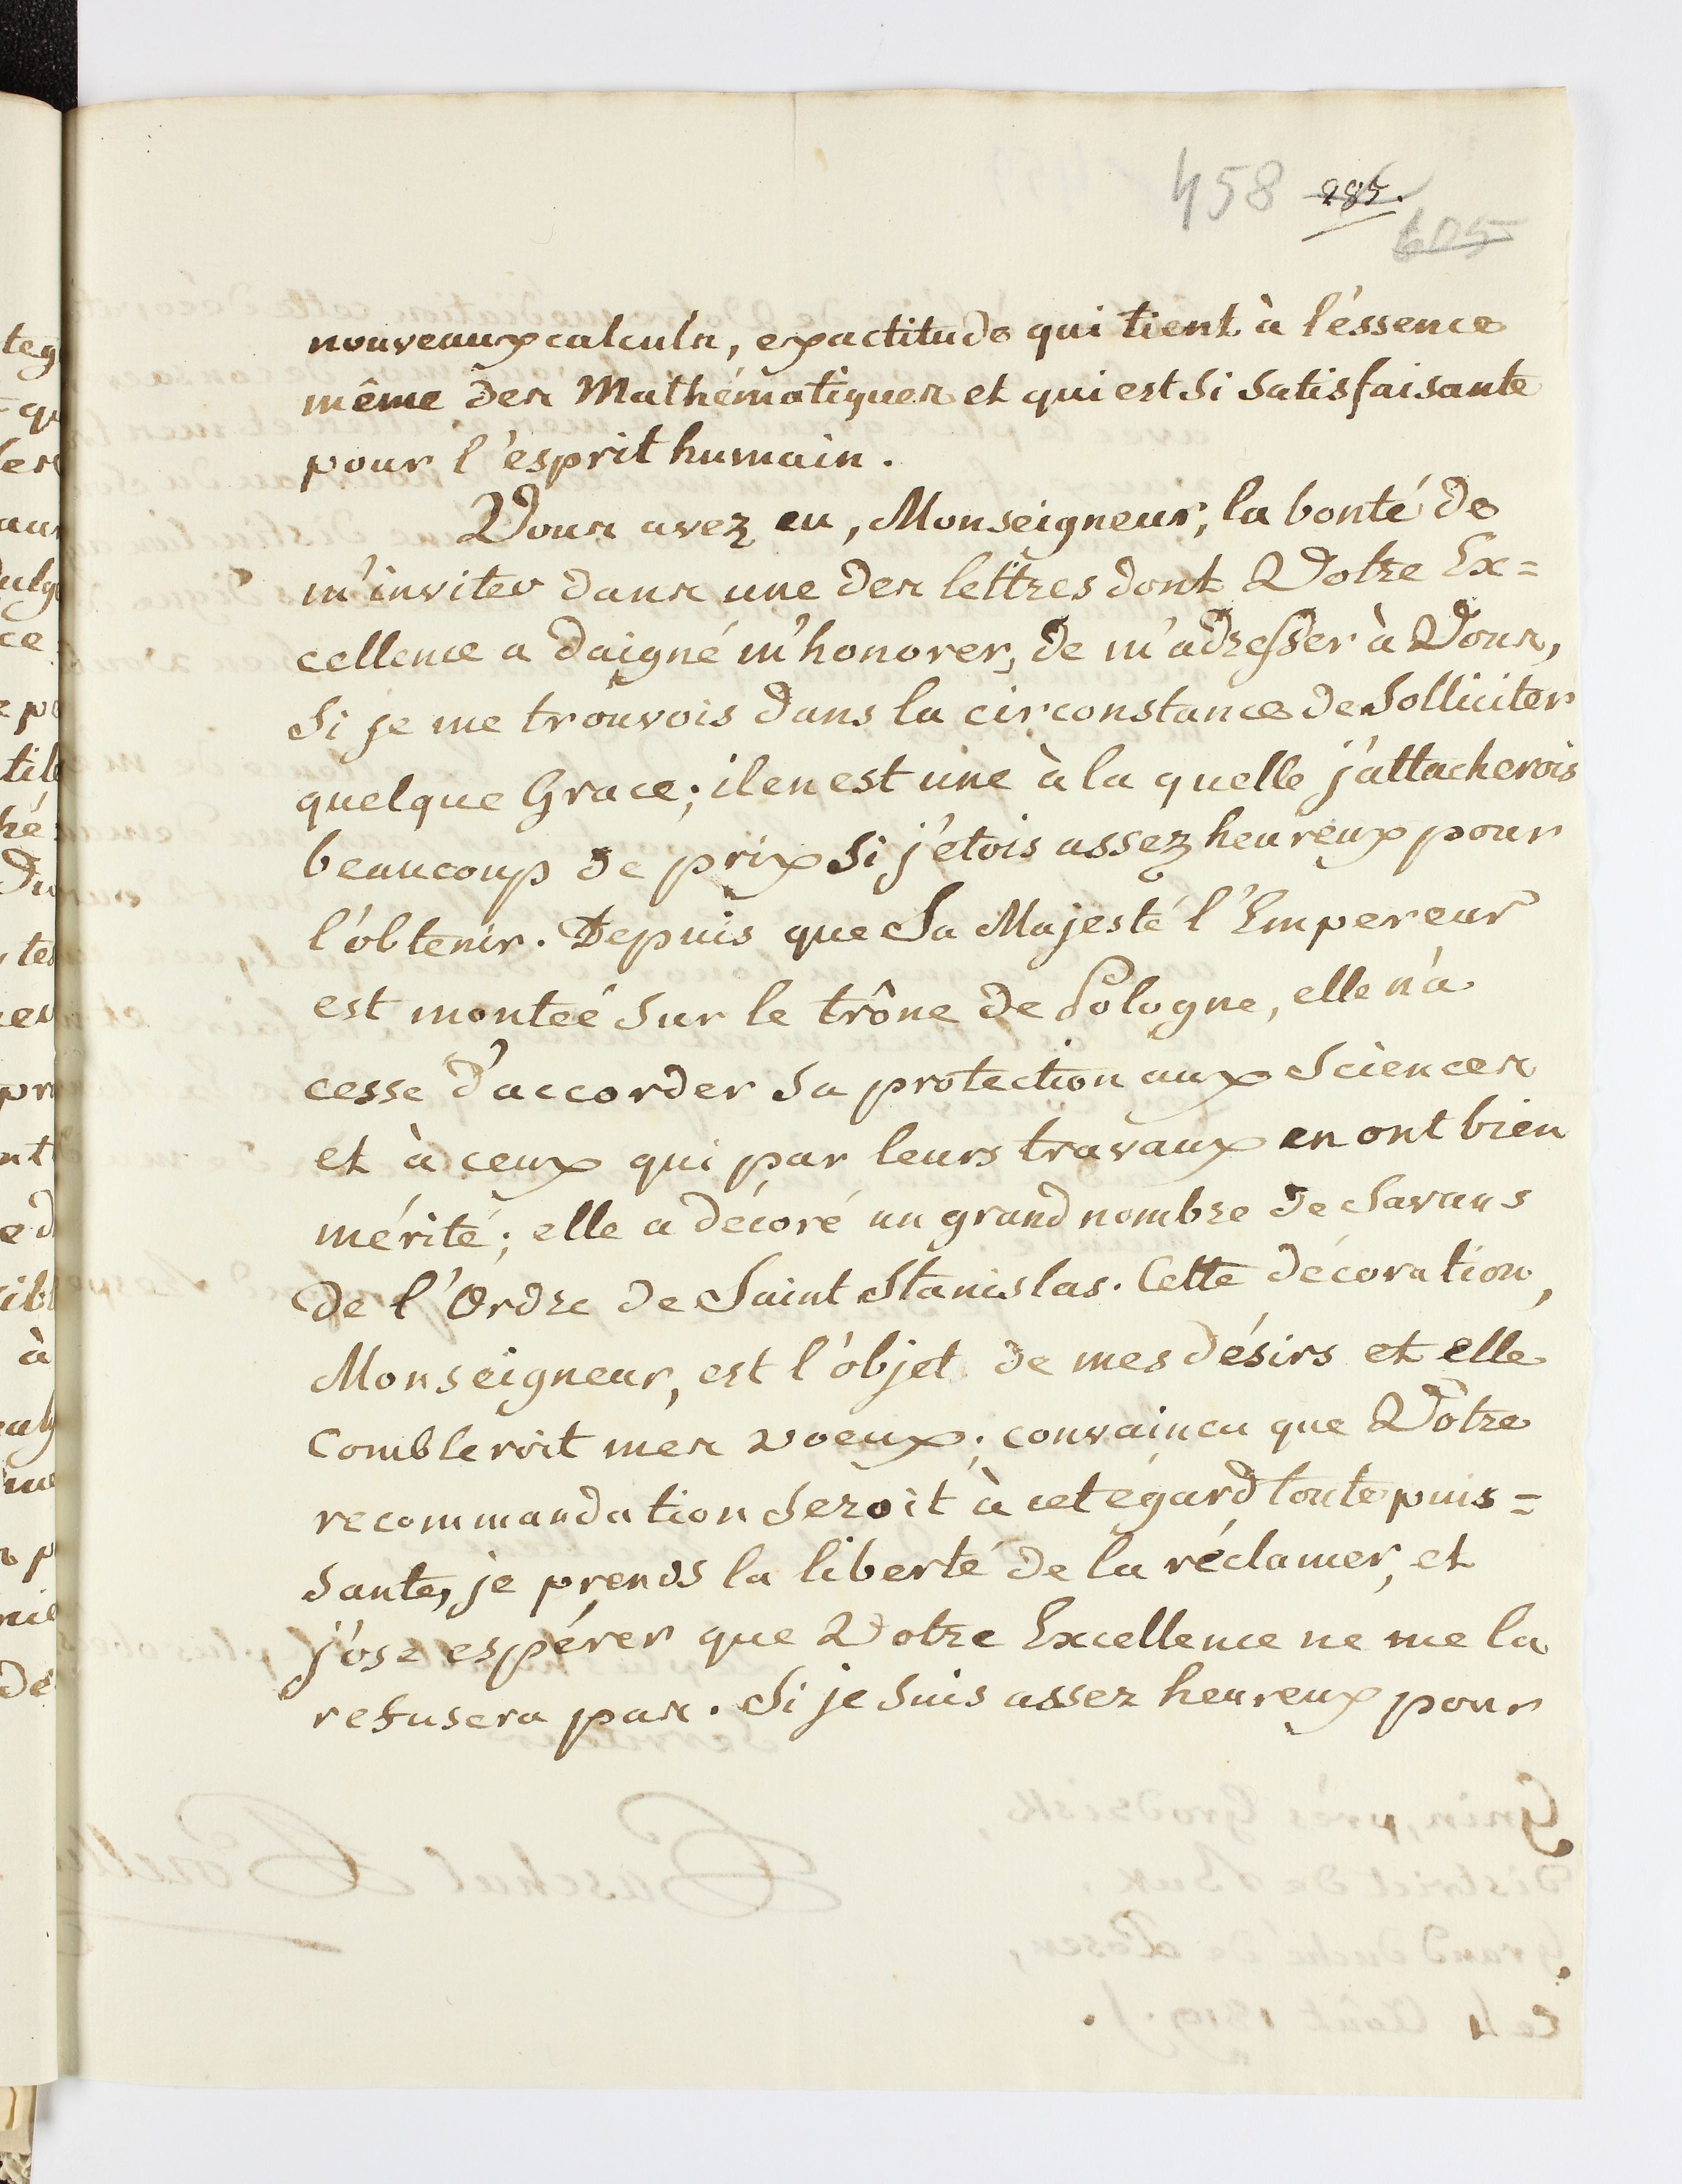 458 285.
605
nouveaux calculs, exactitude qui tient à l'éssence
même des Mathématiques et qui est si satisfaisante
pour l'esprit humain.
Vous avez eu, Monseigneur, la bonté de
m'inviter dans une des lettres dont Votre Ex=
cellence a daigné m'honorer, de m'adresser à Vous,
si je me trouvois dans la circonstance de solliciter
quelque Grace; il en est une à la quelle j'attacherois
beaucoup de prix si j'etois assez heureux pour
l'obtenir. Depuis que Sa Majesté l'Empereur
est monteé sur le trône de Pologne, elle n'a
cesse d'accorder sa protection aux Sciences
et à ceux qui par leurs travaux en ont bien
mérité; elle a décoré un grand nombre de Savans
de l'Ordre de Saint Stanislas. Cette décoration,
Monseigneur, est l'objet de mes désirs et elle
combleroit mes voeux; convaincu que Votre
recommandation seroit à cet égard toute puis=
sante, je prends la liberté de la réclamer, et
j'ose espérer que Votre Excellence ne me la
refusera pas. Si je suis assez heureux pour